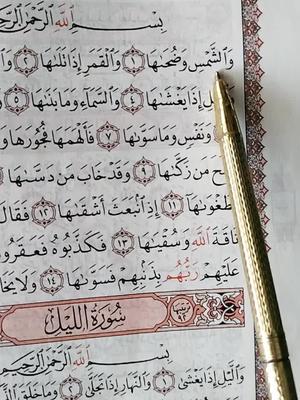 بِسْمِ ٱللَّهِ ٱلرَّحْمَٰنِ ٱلرَّحِيمِ
وَٱلشَّمْسِ وَضُحَىٰهَا ١ وَٱلْقَمَرِ إِذَا تَلَىٰهَا ٢
إِذَا يَغْشَىٰهَا ٤ وَٱلسَّمَآءِ وَمَا بَنَىٰهَا ٥
وَنَفْسٍ وَمَا سَوَّىٰهَا ٧ فَأَلْهَمَهَا فُجُورَهَا
مَن زَكَّىٰهَا ٩ وَقَدْ خَابَ مَن دَسَّىٰهَا
طَغْوَىٰهَآ ١١ إِذِ ٱنۢبَعَثَ أَشْقَىٰهَا ١٢ فَقَالَ
نَاقَةَ ٱللَّهِ وَسُقْيَٰهَا ١٣ فَكَذَّبُوهُ فَعَقَرُو
عَلَيْهِمْ رَبُّهُم بِذَنۢبِهِمْ فَسَوَّىٰهَا ١٤ وَلَا يَخَا
سُورَةُ ٱلَّيْلِ
بِسْمِ ٱللَّهِ ٱلرَّحْمَٰنِ ٱلرَّحِيمِ
وَٱلَّيْلِ إِذَا يَغْشَىٰ ١ وَٱلنَّهَارِ إِذَا تَجَلَّىٰ ٢ وَمَا خَلَقَ